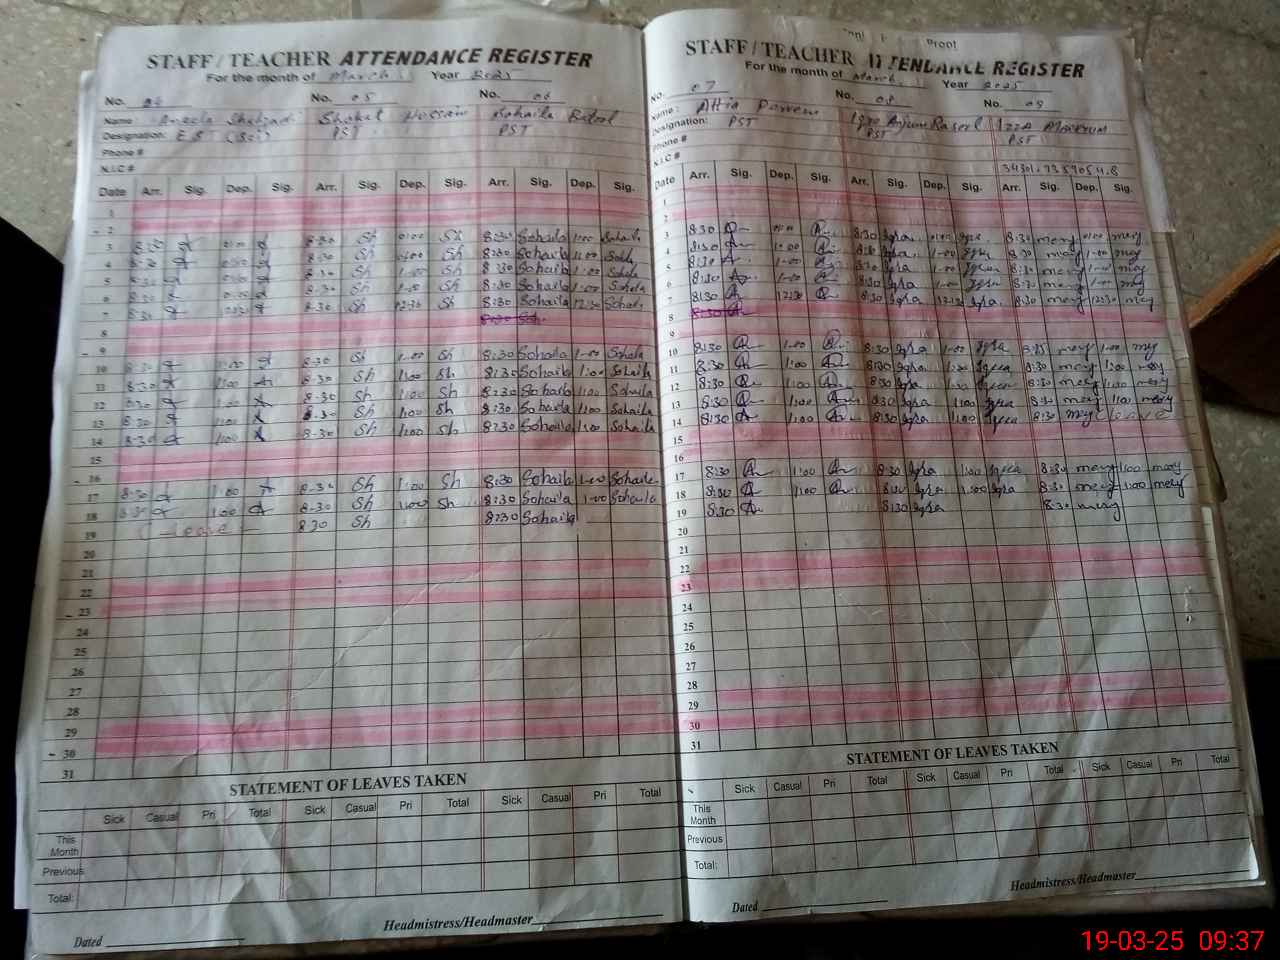 STAFF / TEACHER ATTENDANCE REGISTER
For the month of March Year 2025
No. No. 05 No. 06
Name: Aneela Shahzadi Shokat Hussain Sohaila Batool
Designation: EST (Sci) PST PST
Phone #
N.I.C #
Date Arr. Sig. Dep. Sig. Arr. Sig. Dep. Sig. Arr. Sig. Dep. Sig.
1
2
3 8:30 8:30 Sh 1:00 Sh 8:30 Sohaila 1:00 Sohaila
4 8:30 8:30 Sh 1:00 Sh 8:30 Sohaila 1:00 Sohaila
5 8:30 8:30 Sh 1:00 Sh 8:30 Sohaila 1:00 Sohaila
6 8:30 8:30 Sh 1:00 Sh 8:30 Sohaila 1:00 Sohaila
7 8:30 8:30 Sh 12:30 Sh 8:30 Sohaila 12:30 Sohaila
8 8:30
9
10 8:30 1:00 8:30 Sh 1:00 Sh 8:30 Sohaila 1:00 Sohaila
11 8:30 1:00 8:30 Sh 1:00 Sh 8:30 Sohaila 1:00 Sohaila
12 8:30 1:00 8:30 Sh 1:00 Sh 8:30 Sohaila 1:00 Sohaila
13 8:30 1:00 8:30 Sh 1:00 Sh 8:30 Sohaila 1:00 Sohaila
14 8:30 1:00 8:30 Sh 1:00 Sh 8:30 Sohaila 1:00 Sohaila
15
16
17 8:30 1:00 8:30 Sh 1:00 Sh 8:30 Sohaila 1:00 Sohaila
18 8:30 1:00 8:30 Sh 1:00 Sh 8:30 Sohaila 1:00 Sohaila
19 C-leave 8:30 Sh 8:30 Sohaila
20
21
22
23
24
25
26
27
28
29
30
31
STATEMENT OF LEAVES TAKEN
Sick Casual Pri Total Sick Casual Pri Total Sick Casual Pri Total
This Month
Previous
Total:
Headmistress/Headmaster
Dated
Proof
STAFF / TEACHER ATTENDANCE REGISTER
For the month of March Year 2025
No. 07 No. 08 No. 09
Name: Attia Parveen Iqra Anjum Rasool Izza Maryum
Designation: PST PST PST
Phone #
N.I.C #
Date Arr. Sig. Dep. Sig. Arr. Sig. Dep. Sig. Arr. Sig. Dep. Sig.
1
2
3 8:30 1:00 8:30 Iqra 1:00 Iqra 8:30 mery 1:00 mery
4 8:30 1:00 8:30 Iqra 1:00 Iqra 8:30 mery 1:00 mery
5 8:30 1:00 8:30 Iqra 1:00 Iqra 8:30 mery 1:00 mery
6 8:30 1:00 8:30 Iqra 1:00 Iqra 8:30 mery 1:00 mery
7 8:30 12:30 8:30 Iqra 12:30 Iqra 8:30 mery 12:30 mery
8 8:30
9
10 8:30 1:00 8:30 Iqra 1:00 Iqra mery 1:00 mery
11 8:30 1:00 8:30 Iqra 1:00 Iqra 8:30 mery 1:00 mery
12 8:30 1:00 8:30 Iqra 1:00 Iqra 8:30 mery 1:00 mery
13 8:30 1:00 8:30 Iqra 1:00 Iqra 8:30 mery 1:00 mery
14 8:30 1:00 8:30 Iqra 1:00 Iqra 8:30 mery leave
15
16
17 8:30 1:00 8:30 Iqra 1:00 Iqra 8:30 mery 1:00 mery
18 8:30 1:00 8:30 Iqra 1:00 Iqra 8:30 mery 1:00 mery
19 8:30 8:30 Iqra 8:30 mery
20
21
22
23
24
25
26
27
28
29
30
31
STATEMENT OF LEAVES TAKEN
Sick Casual Pri Total Sick Casual Pri Total Sick Casual Pri Total
This Month
Previous
Total:
Headmistress/Headmaster
Dated
19-03-25 09:37